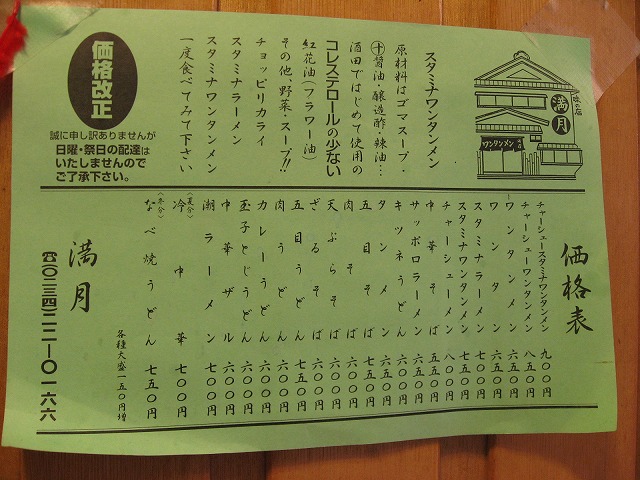 味の店
満月
ワンタンメン
スタミナワンタンメン
原材料はゴマスープ・
㊉醤油・醸造酢・辣油…
酒田ではじめて使用の
コレステロールの少ない
紅花油(フラワー油)
その他、野菜・スープ!!
チョッピリカライ
スタミナラーメン
スタミナワンタンメン
一度食べてみて下さい
価格改正
誠に申し訳ありませんが
日曜・祭日の配達は
いたしませんので
ご了承下さい。
価格表
チャーシュースタミナワンタンメン 九〇〇円
チャーシューワンタンメン 八五〇円
ワンタンメン 六五〇円
ワンタン 六〇〇円
スタミナラーメン 七〇〇円
スタミナワンタンメン 七五〇円
チャーシューメン 八〇〇円
中華そば 五五〇円
サッポロラーメン 六五〇円
キツネうどん 六〇〇円
タンメン 六五〇円
五目そば 七五〇円
肉そば 六〇〇円
天ぷらそば 六〇〇円
ざるそば 六〇〇円
五目うどん 七五〇円
肉うどん 六〇〇円
カレーうどん 六〇〇円
玉子とじうどん 六〇〇円
中華ザル 六〇〇円
潮ラーメン 七〇〇円
(夏分)冷中華 七〇〇円
(冬分)なべ焼うどん 七五〇円
各種大盛一五〇円増
満月
☎(〇二三四)二二ー〇一六六